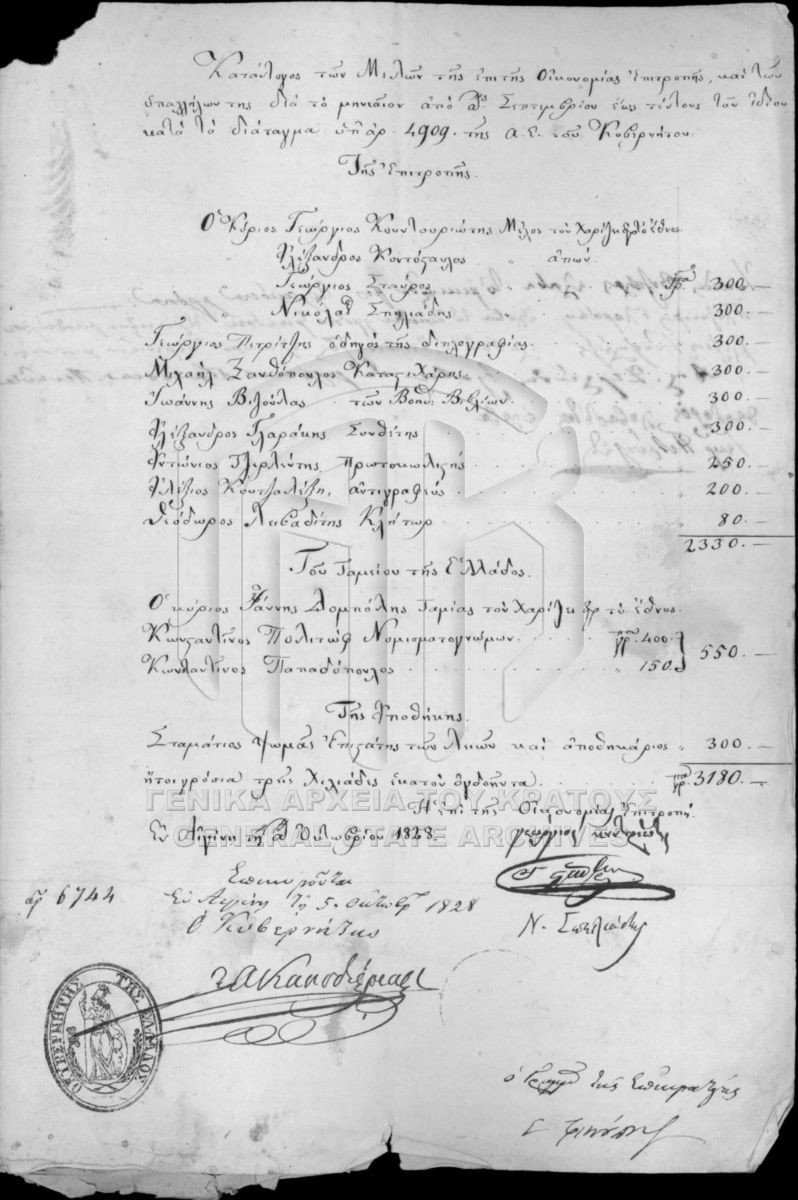 Κατάλογος τῶν Μελῶν τῆς ἐπὶ τῆς Οἰκονομίας Ἐπιτροπῆς, καὶ τῶν
ὑπαλλήλων της διὰ τὸ μηνιαῖον ἀπὸ αης Σεπτεμβρίου ἕως τέλους τοῦ ἰδίου
κατὰ τὸ διάταγμα ὑπ' ἀρ. 4909. τῆς Α. Ε. τοῦ Κυβερνήτου.
Τῆς Ἐπιτροπῆς.
Ὁ Κύριος Γεώργιος Κουντουριώτης Μέλος τὸν Χαρίζει εἰς τὸ ἔθνος.
" Ἀλέξανδρος Κοντόσταυλος " ἀπών.
" Γεώργιος Σταύρος " γρ. 300.—
" Νικόλαος Σπηλιάδης " 300.—
Γεώργιος Πετρίτζης ὁδηγὸς τῆς διπλογραφίας. 300.—
Μιχαὴλ Ξανθόπουλος Καταστιχάρης. 300.—
Ἰωάννης Βιτούλας τῶν Βοηθ. Βιβλίων. 300.—
Ἀλέξανδρος Γλαράκης Συνθέτης 300.—
Ἀντώνιος Πρωτοκωλιστής 250.—
Ἀλέξιος Κουτζαλέξη, ἀντιγραφεύς. " 200.—
Θεόδωρος Λειβαδίτης Κλήτωρ " 80.—
2330.—
Τοῦ Ταμείου τῆς Ἑλλάδος.
Ὁ κύριος Ἰάννης Δομπόλης Ταμίας τὸν Χαρίζει εἰς τὸ ἔθνος.
Κωνσταντῖνος Νομισματογνώμων. γρ. 400
Κωνσταντῖνος Παπαδόπουλος " 150. } 550.—
Τῆς Ἀποθήκης.
Σταμάτιος Ψωμᾶς Ἐπιστάτης τῶν καὶ ἀποθηκάριος " 300.—
ἤτοι γρόσια τρεῖς Χιλιάδες ἑκατὸν ὀγδοήντα. γρ. 3180.—
ΓΕΝΙΚΑ ΑΡΧΕΙΑ ΤΟΥ ΚΡΑΤΟΥΣ
GENERAL STATE ARCHIVES
Ἡ ἐπὶ τῆς Οἰκονομίας Ἐπιτροπή.
Ἐν Αἰγίνῃ τῇ α Ὀκτωβρίου 1828.
γεώργιος κουντουριώτης
Γ. Σταύρου
Ν. Σπηλιάδης
ἀρ. 6744
Ἐπικυροῦται
Ἐν Αἰγίνῃ τῇ 5. Ὀκτωβρ. 1828
Ὁ Κυβερνήτης
Ι. Α. Καποδίστριας
Ο ΚΥΒΕΡΝΗΤΗΣ ΤΗΣ ΕΛΛΑΔΟΣ
ὁ Γραμματεὺς τῆς Ἐπικρατείας